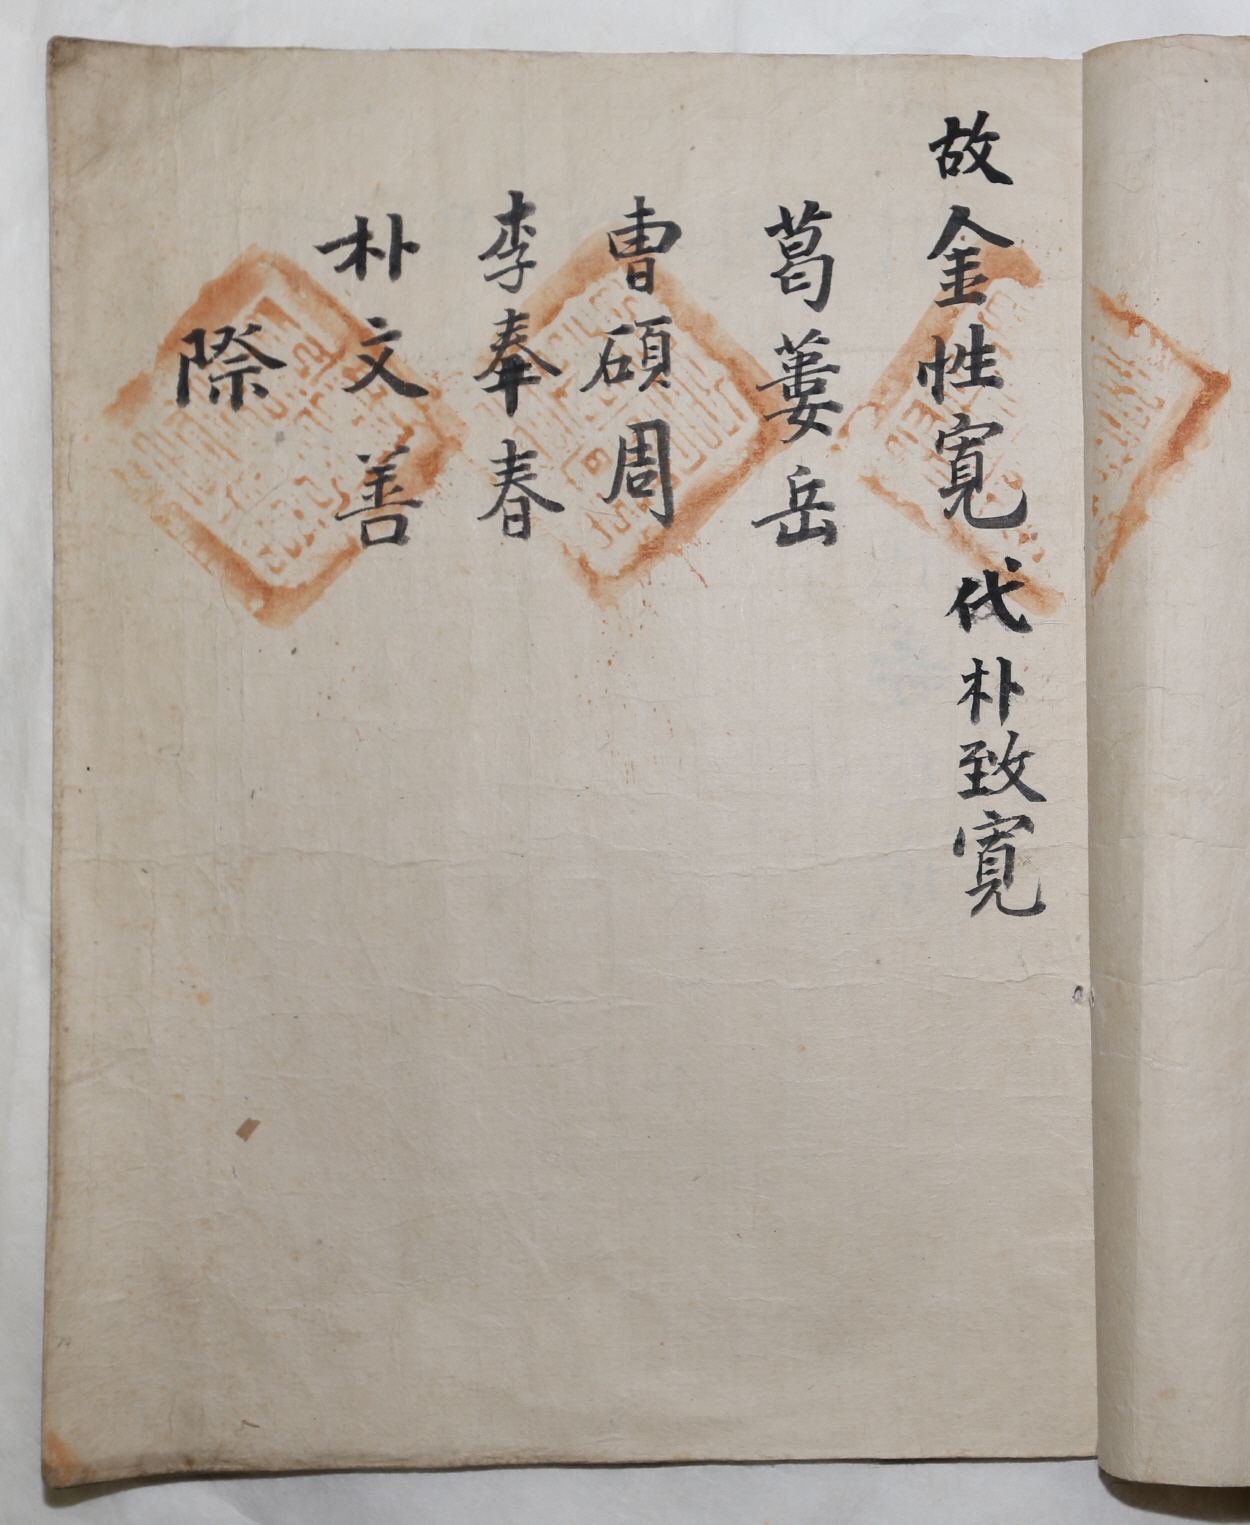 故金性寬代朴致寬
葛蔞岳
曺碩周
李奉春
朴文善
際